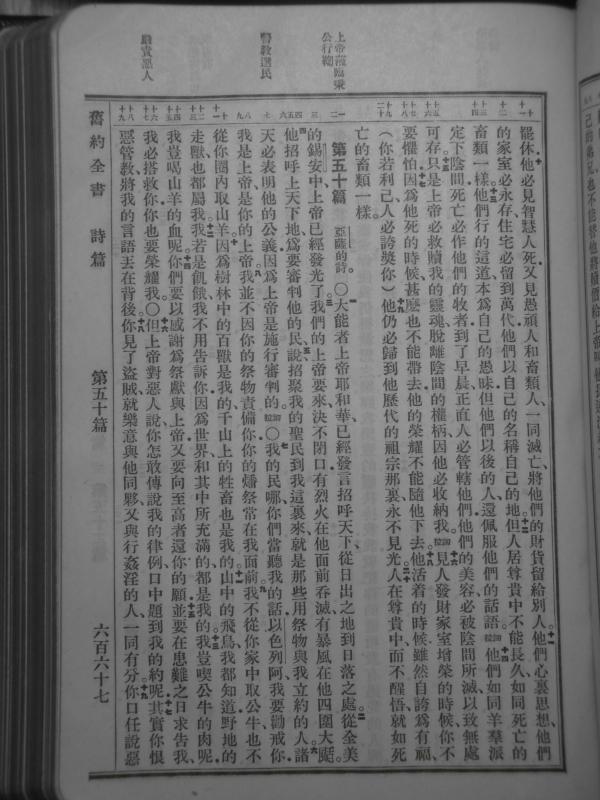 罷休他必見智慧人死又見愚頑人和畜類人一同滅亡將他們的財貨留給別人他們心裏思想他們
的家室必永存住宅必留到萬代他們以自己的名稱自己的地但人居尊貴中不能長久如同死亡的
畜類一樣他們行的這道本爲自己的愚昧但他們以後的人還佩服他們的話語他們如同羊羣派
定下陰間死亡必作他們的牧者到了早晨正直人必管轄他們他們的美容必被陰間所滅以致無處
可存只是上帝必救贖我的靈魂脫離陰間的權柄因他必收納我見人發財家室增榮的時候你不
要懼怕因爲他死的時候甚麽也不能帶去他的榮耀不能隨他下去他活着的時候雖然自誇爲有福
(你若利己人必誇獎你)他仍必歸到他歷代的祖宗那裏永不見光人在尊貴中而不醒悟就如死
亡的畜類一樣
第五十篇 亞薩的詩 〇大能者上帝耶和華已經發言招呼天下從日出之地到日落之處從全美
的錫安中上帝已經發光了我們的上帝要來決不閉口有烈火在他面前吞滅有暴風在他四圍大颳
他招呼上天下地爲要審判他的民說招聚我的聖民到我這裏來就是那些用祭物與我立約的人諸
天必表明他的公義因爲上帝是施行審判的〇我的民哪你們當聽我的話以色列阿我要勸戒你
我是上帝是你的上帝我並不因你的祭物責備你你的燔祭常在我面前我不從你家中取公牛也不
從你圈內取山羊因爲樹林中的百獸是我的千山上的牲畜也是我的山中的飛鳥我都知道野地的
走獸也都屬我我若是飢餓我不用告訴你因爲世界和其中所充滿的都是我的我豈喫公牛的肉呢
我豈喝山羊的血呢你們要以感謝爲祭獻與上帝又要向至高者還你的願並要在患難之日求告我
我必搭救你你也要榮耀我〇但上帝對惡人說你怎敢傳說我的律例口中題到我的約呢其實你恨
惡管教將我的言語丟在背後你見了盜賊就樂意與他同夥又與行姦淫的人一同有分你口任說惡
舊約全書 詩篇 第五十篇 六百六十七
上帝蒞臨秉
公行鞫
警教選民
嚴責惡人